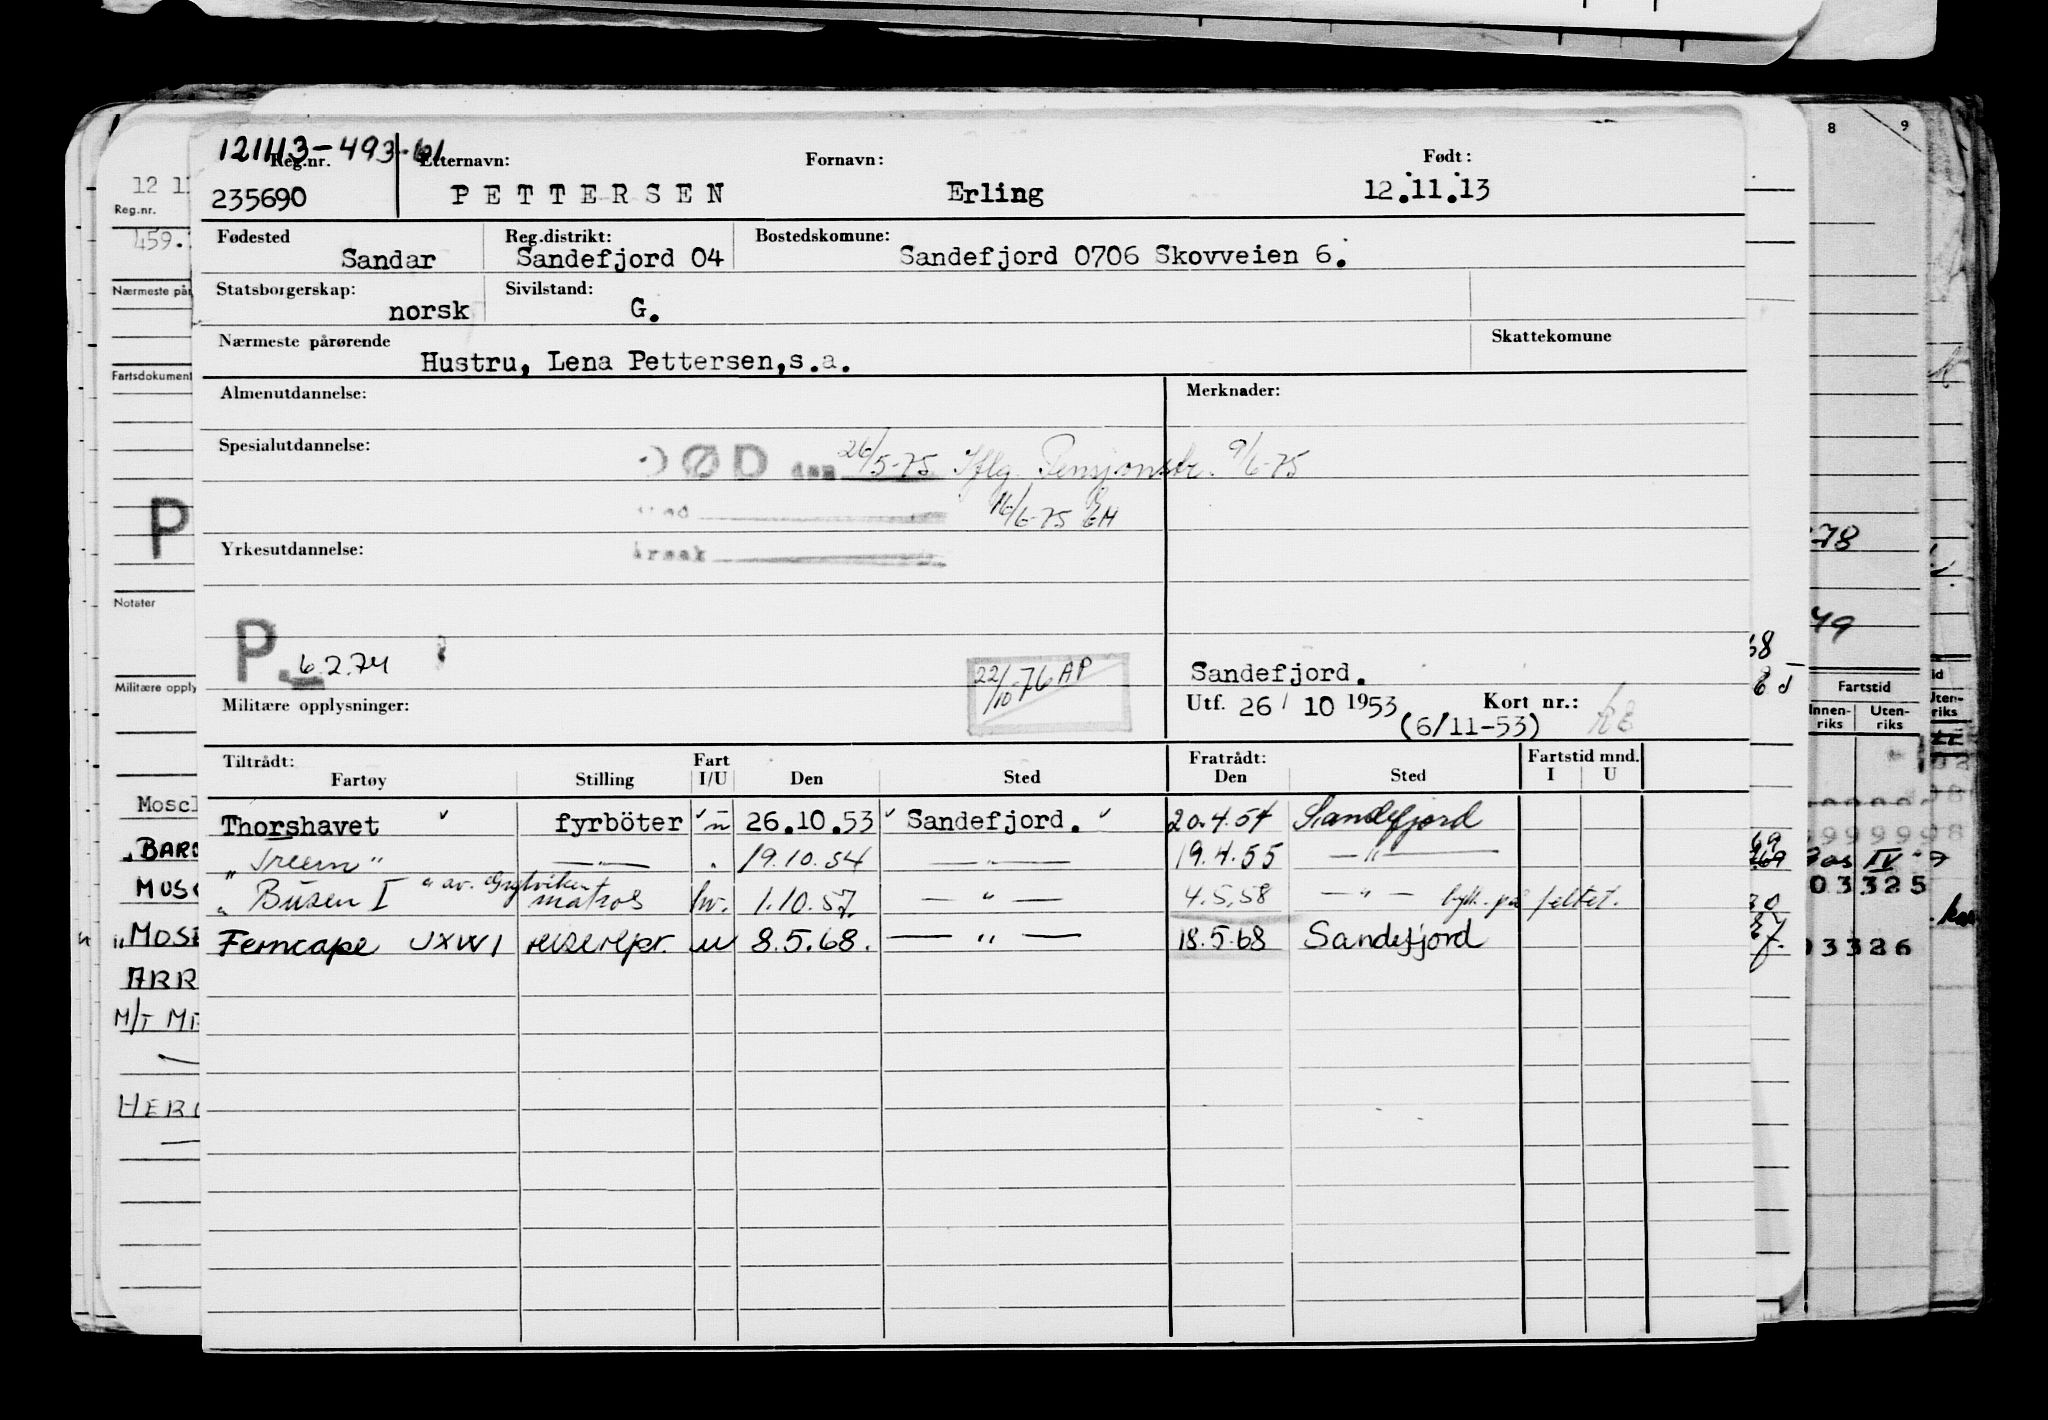 121113-493-61
Reg.nr. Etternavn: Fornavn: Født:
235690 PETTERSEN Erling 12.11.13
Fødested Reg.distrikt: Bostedskomune:
Sandar Sandefjord 04 Sandefjord 0706 Skovveien 6.
Statsborgerskap: Sivilstand:
norsk G.
Nærmeste pårørende Skattekomune
Hustru, Lena Pettersen,s.a.
Almenutdannelse: Merknader:
Spesialutdannelse:
DØD den 26/5-75 Iflg. Pensjonstr. 9/6-75
sted 16/6-75 EH
Yrkesutdannelse: årsak
P. 6.2.74
22/10-76 AP
Sandefjord.
Militære opplysninger: Utf. 26/10 1953 Kort nr.:
(6/11-53)
Tiltrådt: Fart Fratrådt: Fartstid mnd.
Fartøy Stilling I/U Den Sted Den Sted I U
Thorshavet fyrböter u 26.10.53 Sandefjord. 20.4.54 Sandefjord
" " — " — 19.10.54 — " — 19.4.55 — " —
" Busen I " av. Grytviken matros hv. 1.10.57. — " — 4.5.58 — " — på feltet.
Ferncape JXWI reiserepr. u 8.5.68. — " — 18.5.68 Sandefjord
12 1
Reg.nr.
459.
Nærmeste pår
Fartsdokument
P
Notater
Militære opply
Mosc
"BARO
MOSC
"MOSE
ARR
M/T ME
HERO
8 9
78
49
Fartstid
Innen-riks Uten-riks
Uten-riks
03325
03326